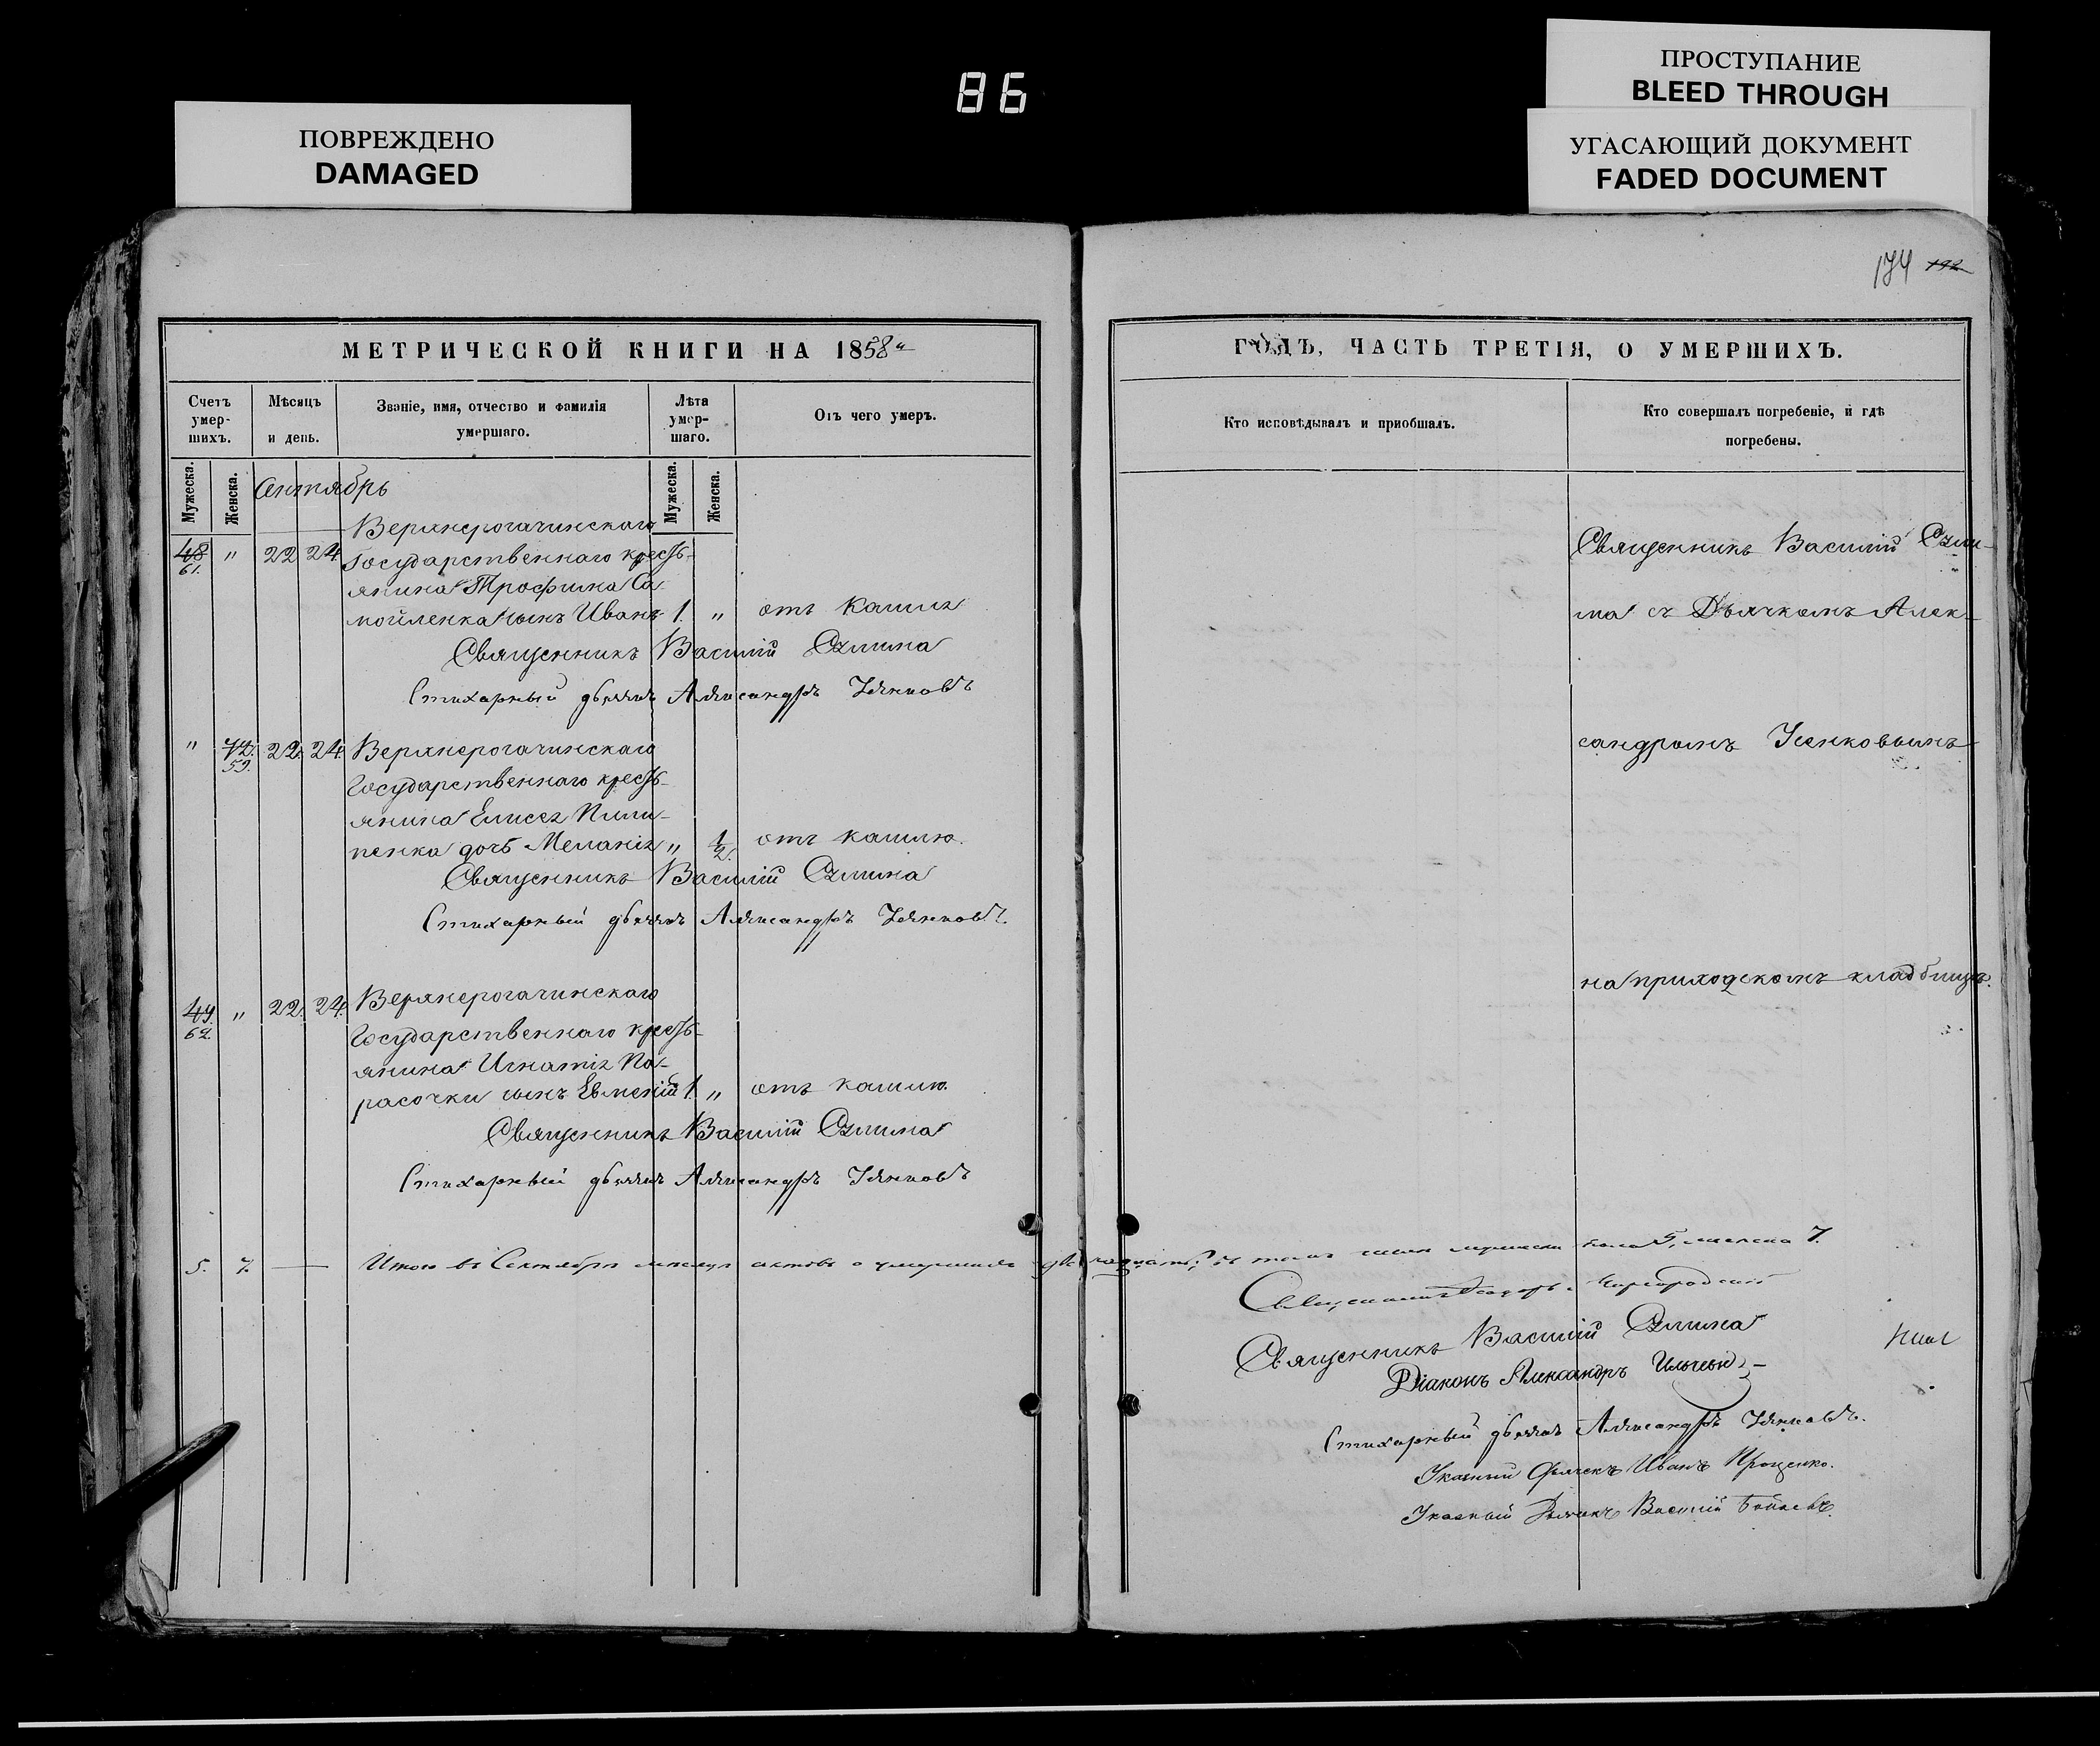 86
ПОВРЕЖДЕНО
DAMAGED
ПРОСТУПАНИЕ
BLEED THROUGH
УГАСАЮЩИЙ ДОКУМЕНТ
FADED DOCUMENT
174 192
МЕТРИЧЕСКОЙ КНИГИ НА 1858й
Счетъ умер-шихъ.
Мѣсяцъ и день.
Званіе, имя, отчество и фамилія умершаго.
Лѣта умер-шаго.
Отъ чего умеръ.
Мужеска.
Женска.
Мужеска.
Женска.
Сентябрь
Верхнерогачинскаго
48 61. " 22 24 Государственнаго кресть-
янина Трофима Са-
мойленка сынъ Иванъ 1. " отъ кашля
Священникъ Василій
Стихарный дьячокъ Александръ Усенковъ
" 42. 59. 22. 24. Верхнерогачинскаго
Государственнаго кресть-
янина Елисея Пили-
пенка дочь Меланія " 1/2. отъ кашлю.
Священникъ Василій
Стихарный дьячокъ Александръ Усенковъ.
49. 62. " 22. 24. Верхнерогачинскаго
Государственнаго кресть-
янина Игнатія По-
расочки сынъ 1. " отъ кашлю
Священникъ Василій
Стихарный дьячокъ Александръ Усенковъ
5. 7. Итого въ Сентябрѣ мѣсяцѣ актовъ о умершихъ двѣнадцать, въ томъ числѣ мужеска пола 5, женска 7.
ГОДЪ, ЧАСТЬ ТРЕТІЯ, О УМЕРШИХЪ.
Кто исповѣдывалъ и пріобшалъ.
Кто совершалъ погребеніе, и гдѣ погребены.
Священникъ Василій
съ Дьячкомъ Алек-
сандромъ Усенковымъ
на приходскомъ кладбищѣ.
Священникъ
Священникъ Василій
Діаконъ Александръ
Стихарный дьячокъ Александръ Усенковъ.
Указный Дьячекъ Иванъ Проценко.
Указный Дьячекъ Василій